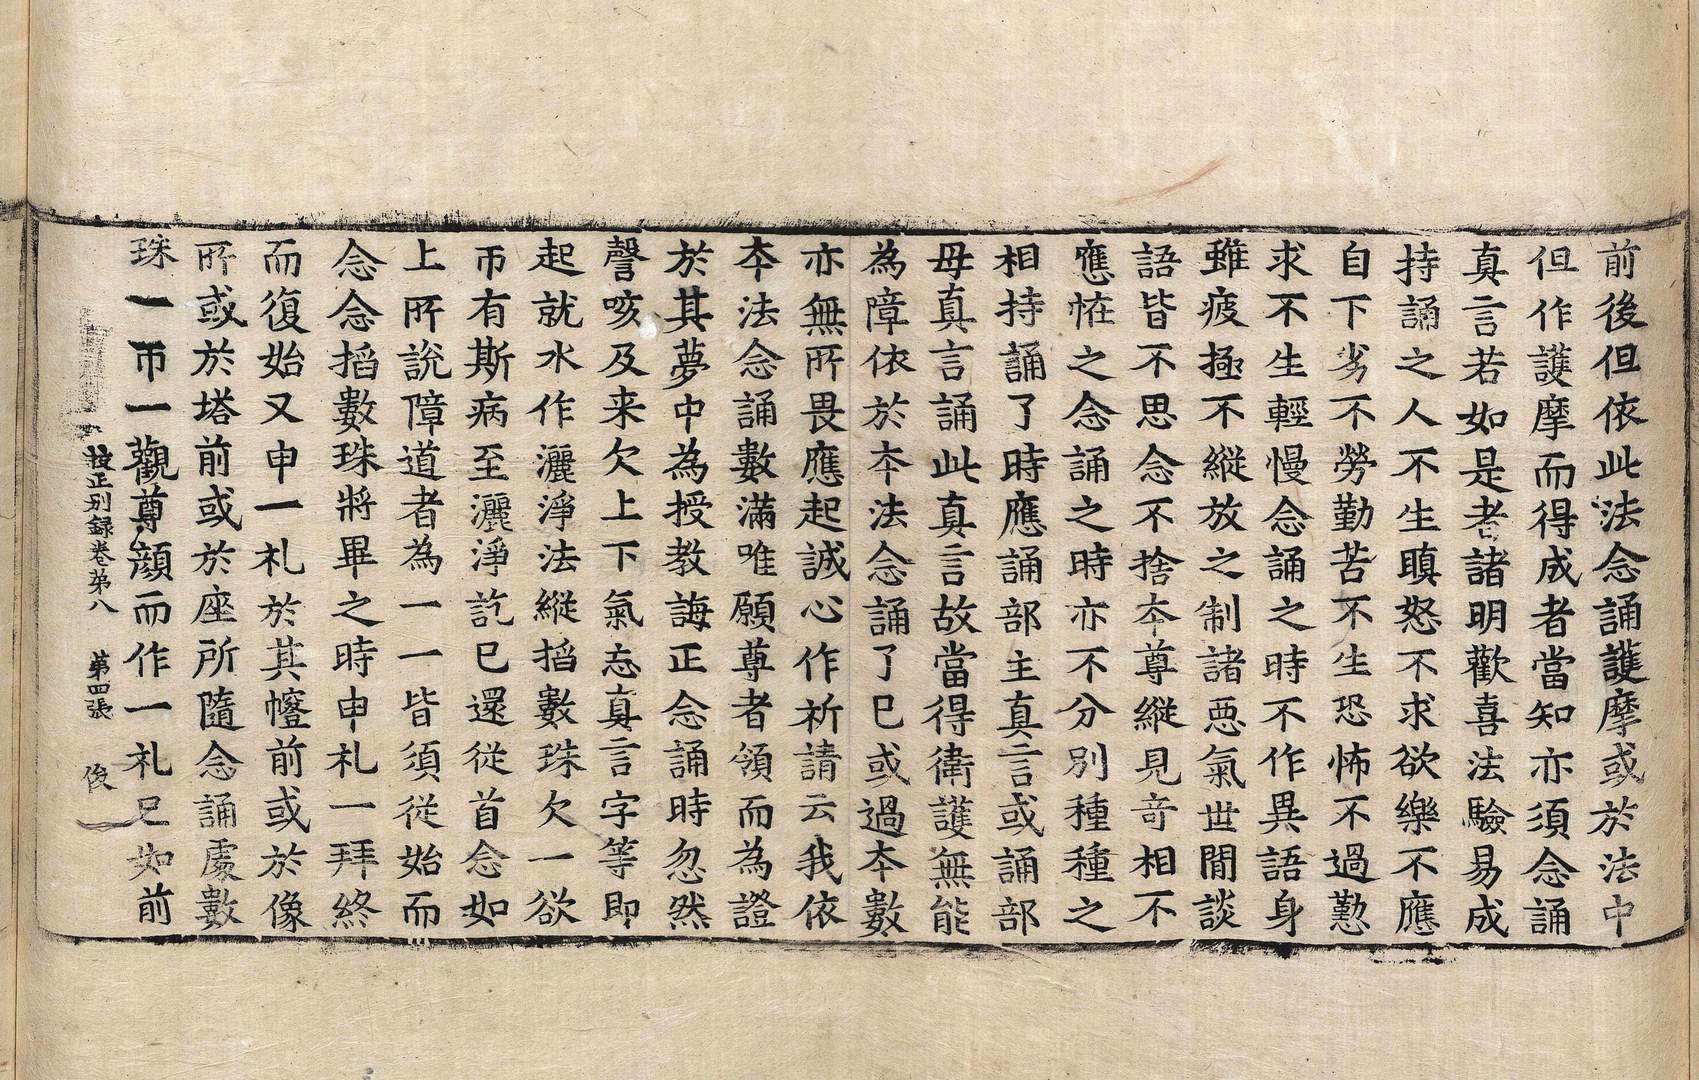 前後但依此法念誦護摩或於法中
但作護摩而得成者當知亦須念誦
真言若如是者諸明歡喜法驗易成
持誦之人不生瞋怒不求欲樂不應
自下劣不勞勤苦不生恐怖不過懃
求不生輕慢念誦之時不作異語身
雖疲極不縱放之制諸悪氣世閒談
語皆不思念不捨夲尊縱見竒相不
應恠之念誦之時亦不分別種種之
相持誦了時應誦部主真言或誦部
母真言誦此真言故當得衛護無能
為障依於夲法念誦了已或過夲數
亦無所畏應起誠心作祈請云我依
夲法念誦數滿唯願尊者領而為證
於其夢中為授教誨正念誦時忽然
謦咳及来欠上下氣忘真言字等即
起就水作灑淨法縱掐數珠欠一欲
帀有斯病至灑淨訖已還從首念如
上所說障道者為一一皆須從始而
念念掐數珠將畢之時申礼一拜終
而復始又申一礼於其幰前或於像
所或於塔前或於座所隨念誦處數
珠一帀一觀尊顔而作一礼已如前
挍正別録卷第八 第四張 俊